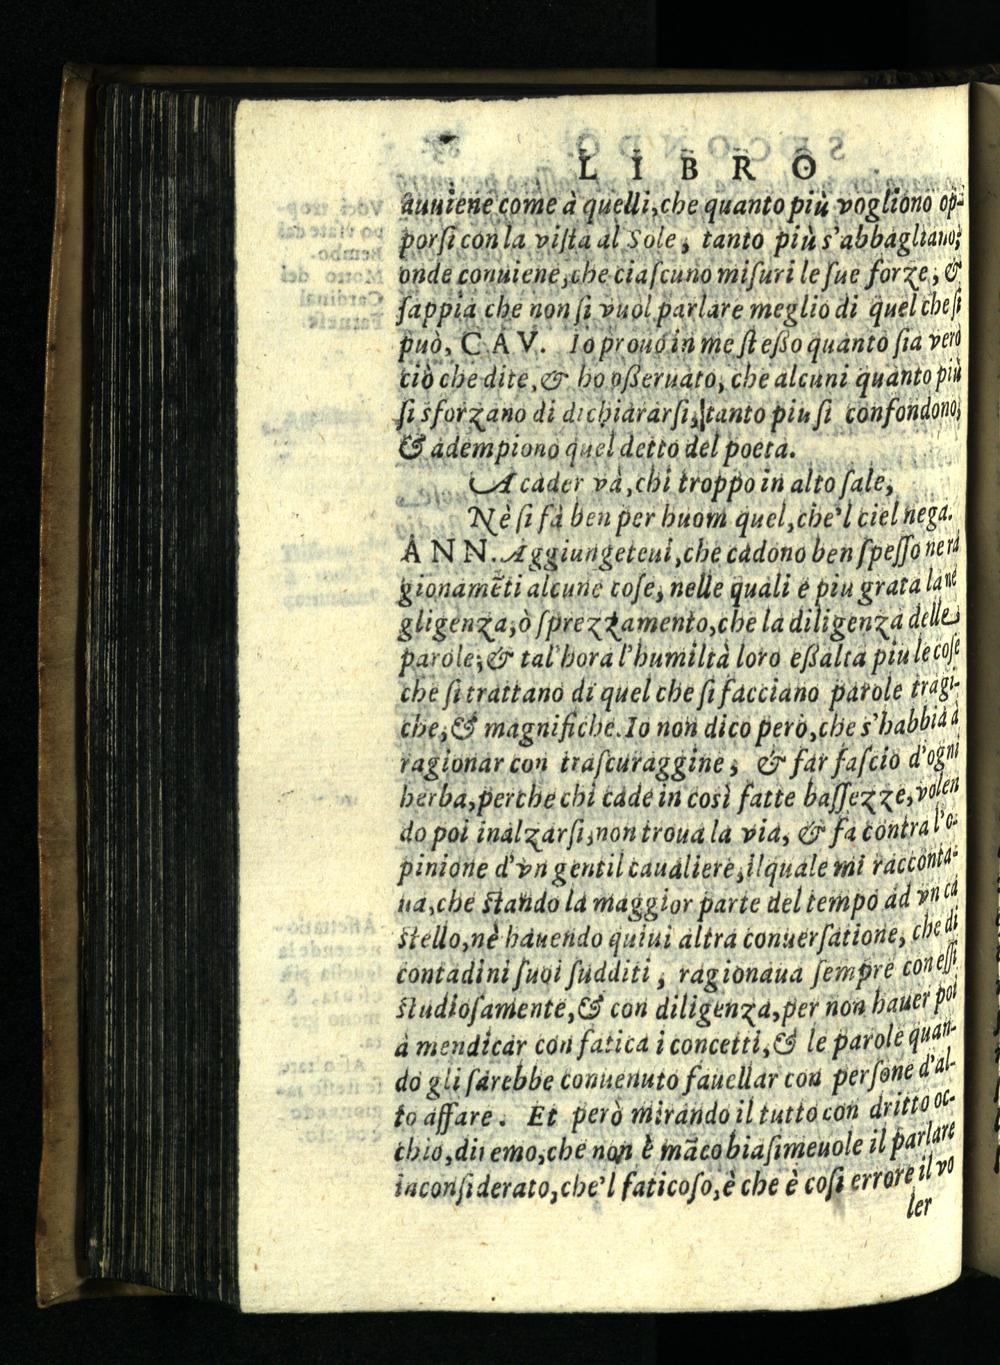 LIBRO
auuiene come à quelli, che quanto più vogliono op-
porſi con la viſta al Sole, tanto più s'abbagliano;
onde conuiene, che ciaſcuno miſuri le ſue forze, &
ſappia che non ſi vuol parlare meglio di quel che ſi
può, CAV. Io prouo in me ſteßo quanto ſia vero
ciò che dite, & ho oßeruato, che alcuni quanto più
ſi sforzano di dichiararſi, tanto piu ſi confondono,
& adempiono quel detto del poeta.
A cader và, chi troppo in alto ſale,
Nè ſi fà ben per huom quel, che'l ciel nega.
ANN. Aggiungeteui, che cadono ben ſpeſſo ne ra
gionamẽti alcune coſe, nelle quali è piu grata la ne
gligenza, ò ſprezzamento, che la diligenza delle
parole; & tal'hora l'humiltà loro eßalta piu le coſe
che ſi trattano di quel che ſi facciano parole tragi-
che, & magnifiche. Io non dico però, che s'habbia à
ragionar con traſcuraggine, & far faſcio d'ogni
herba, perche chi cade in così fatte baſſezze, volen
do poi inalzarſi, non troua la via, & fa contra l'o-
pinione d'vn gentil caualiere, ilquale mi racconta-
ua, che ſtando la maggior parte del tempo ad vn ca
ſtello, nè hauendo quiui altra conuerſatione, che di
contadini ſuoi ſudditi, ragionaua ſempre con eſſi
ſtudioſamente, & con diligenza, per non hauer poi
à mendicar con fatica i concetti, & le parole quan-
do gli ſarebbe conuenuto fauellar con perſone d'al-
to affare. Et però mirando il tutto con dritto oc-
chio, diremo, che non è mãco biaſimeuole il parlare
inconſiderato, che'l faticoſo, è che è coſi errore il vo
ler